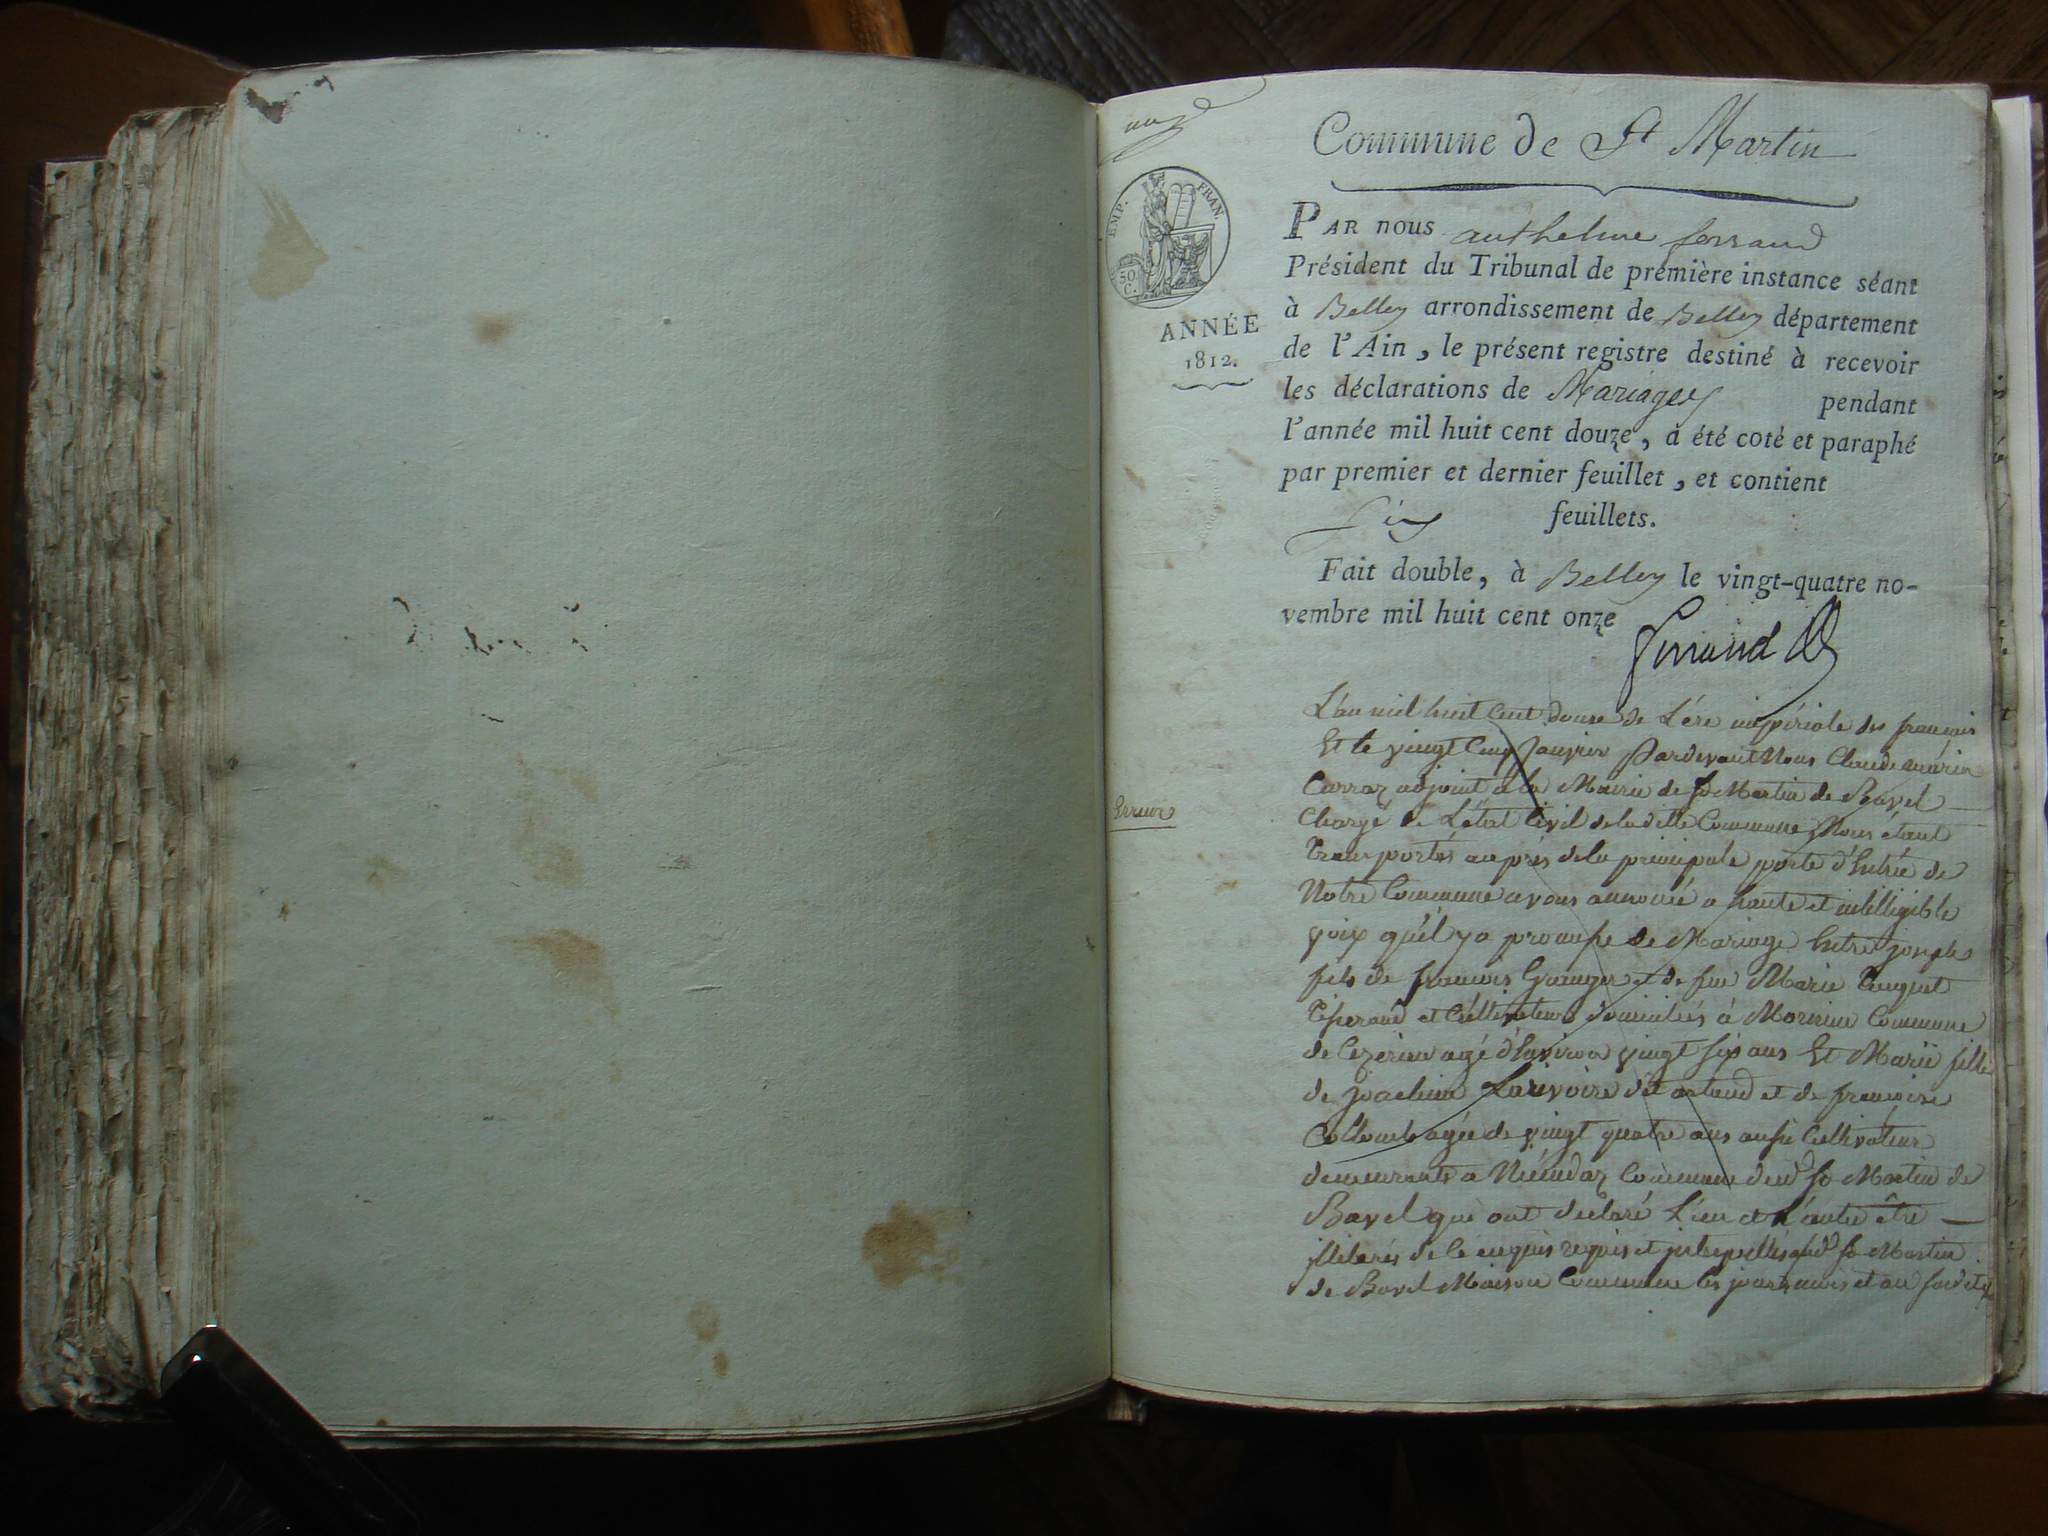 Commune de St Martin
EMP. FRAN.
50
C.
ANNÉE
1812.
PAR nous anthelme ferrand
Président du Tribunal de première instance séant
à Belley arrondissement de Belley département
de l'Ain, le présent registre destiné à recevoir
les déclarations de Mariages pendant
l'année mil huit cent douze, a été coté et paraphé
par premier et dernier feuillet, et contient
six feuillets.
Fait double, à Belley le vingt-quatre no-
vembre mil huit cent onze
Ferrand
Erreur
L'an mil huit Cent douze de L'ére impériale des françois
Et le vingt Cinq Janvier Pardevant Nous Claude marin
Carraz adjoint a la Mairie de St Martin de Bavel
Chargé de L'état Civil de la ditte Commune Nous étant
Transportés au près de la principale porte d'Entrée de
Notre Commune avons annoncé a haute et intelligible
voix qu'il y a promesse de Mariage Entre joseph
fils de francois Granger et de feue Marie
et Cultivateurs domiciliés à Commune
de Ceyzerieu agé d'Environ vingt six ans Et Marie fille
de joachim Larivoire dit artaud et de francoise
Collomb agée de vingt quatre ans aussi Cultivateur
demeurants a Commune dud St Martin de
Bavel qui ont declaré L'un et L'autre être
illiterés de ce enquis requis et interpellés aud St Martin
de Bavel Maison Commune les jour mois et an susdits